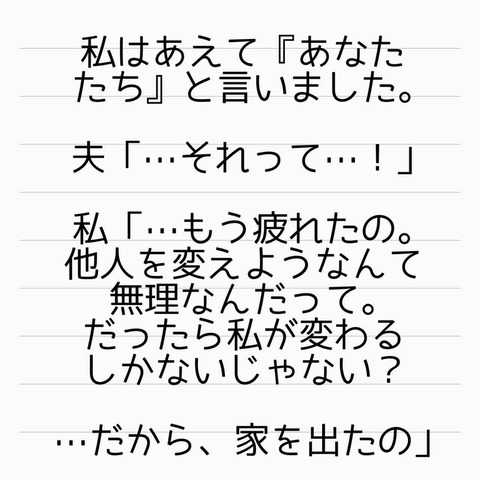 私はあえて『あなた
たち』と言いました。
夫「…それって…！」
私「…もう疲れたの。
他人を変えようなんて
無理なんだって。
だったら私が変わる
しかないじゃない？
…だから、家を出たの」